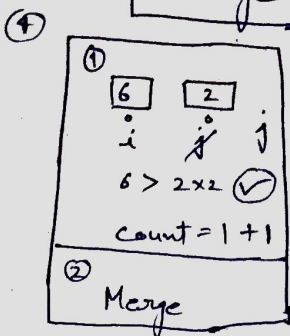 ④
①
6 2
i j j
6 > 2x2 ✓
count = 1 + 1
②
Merge